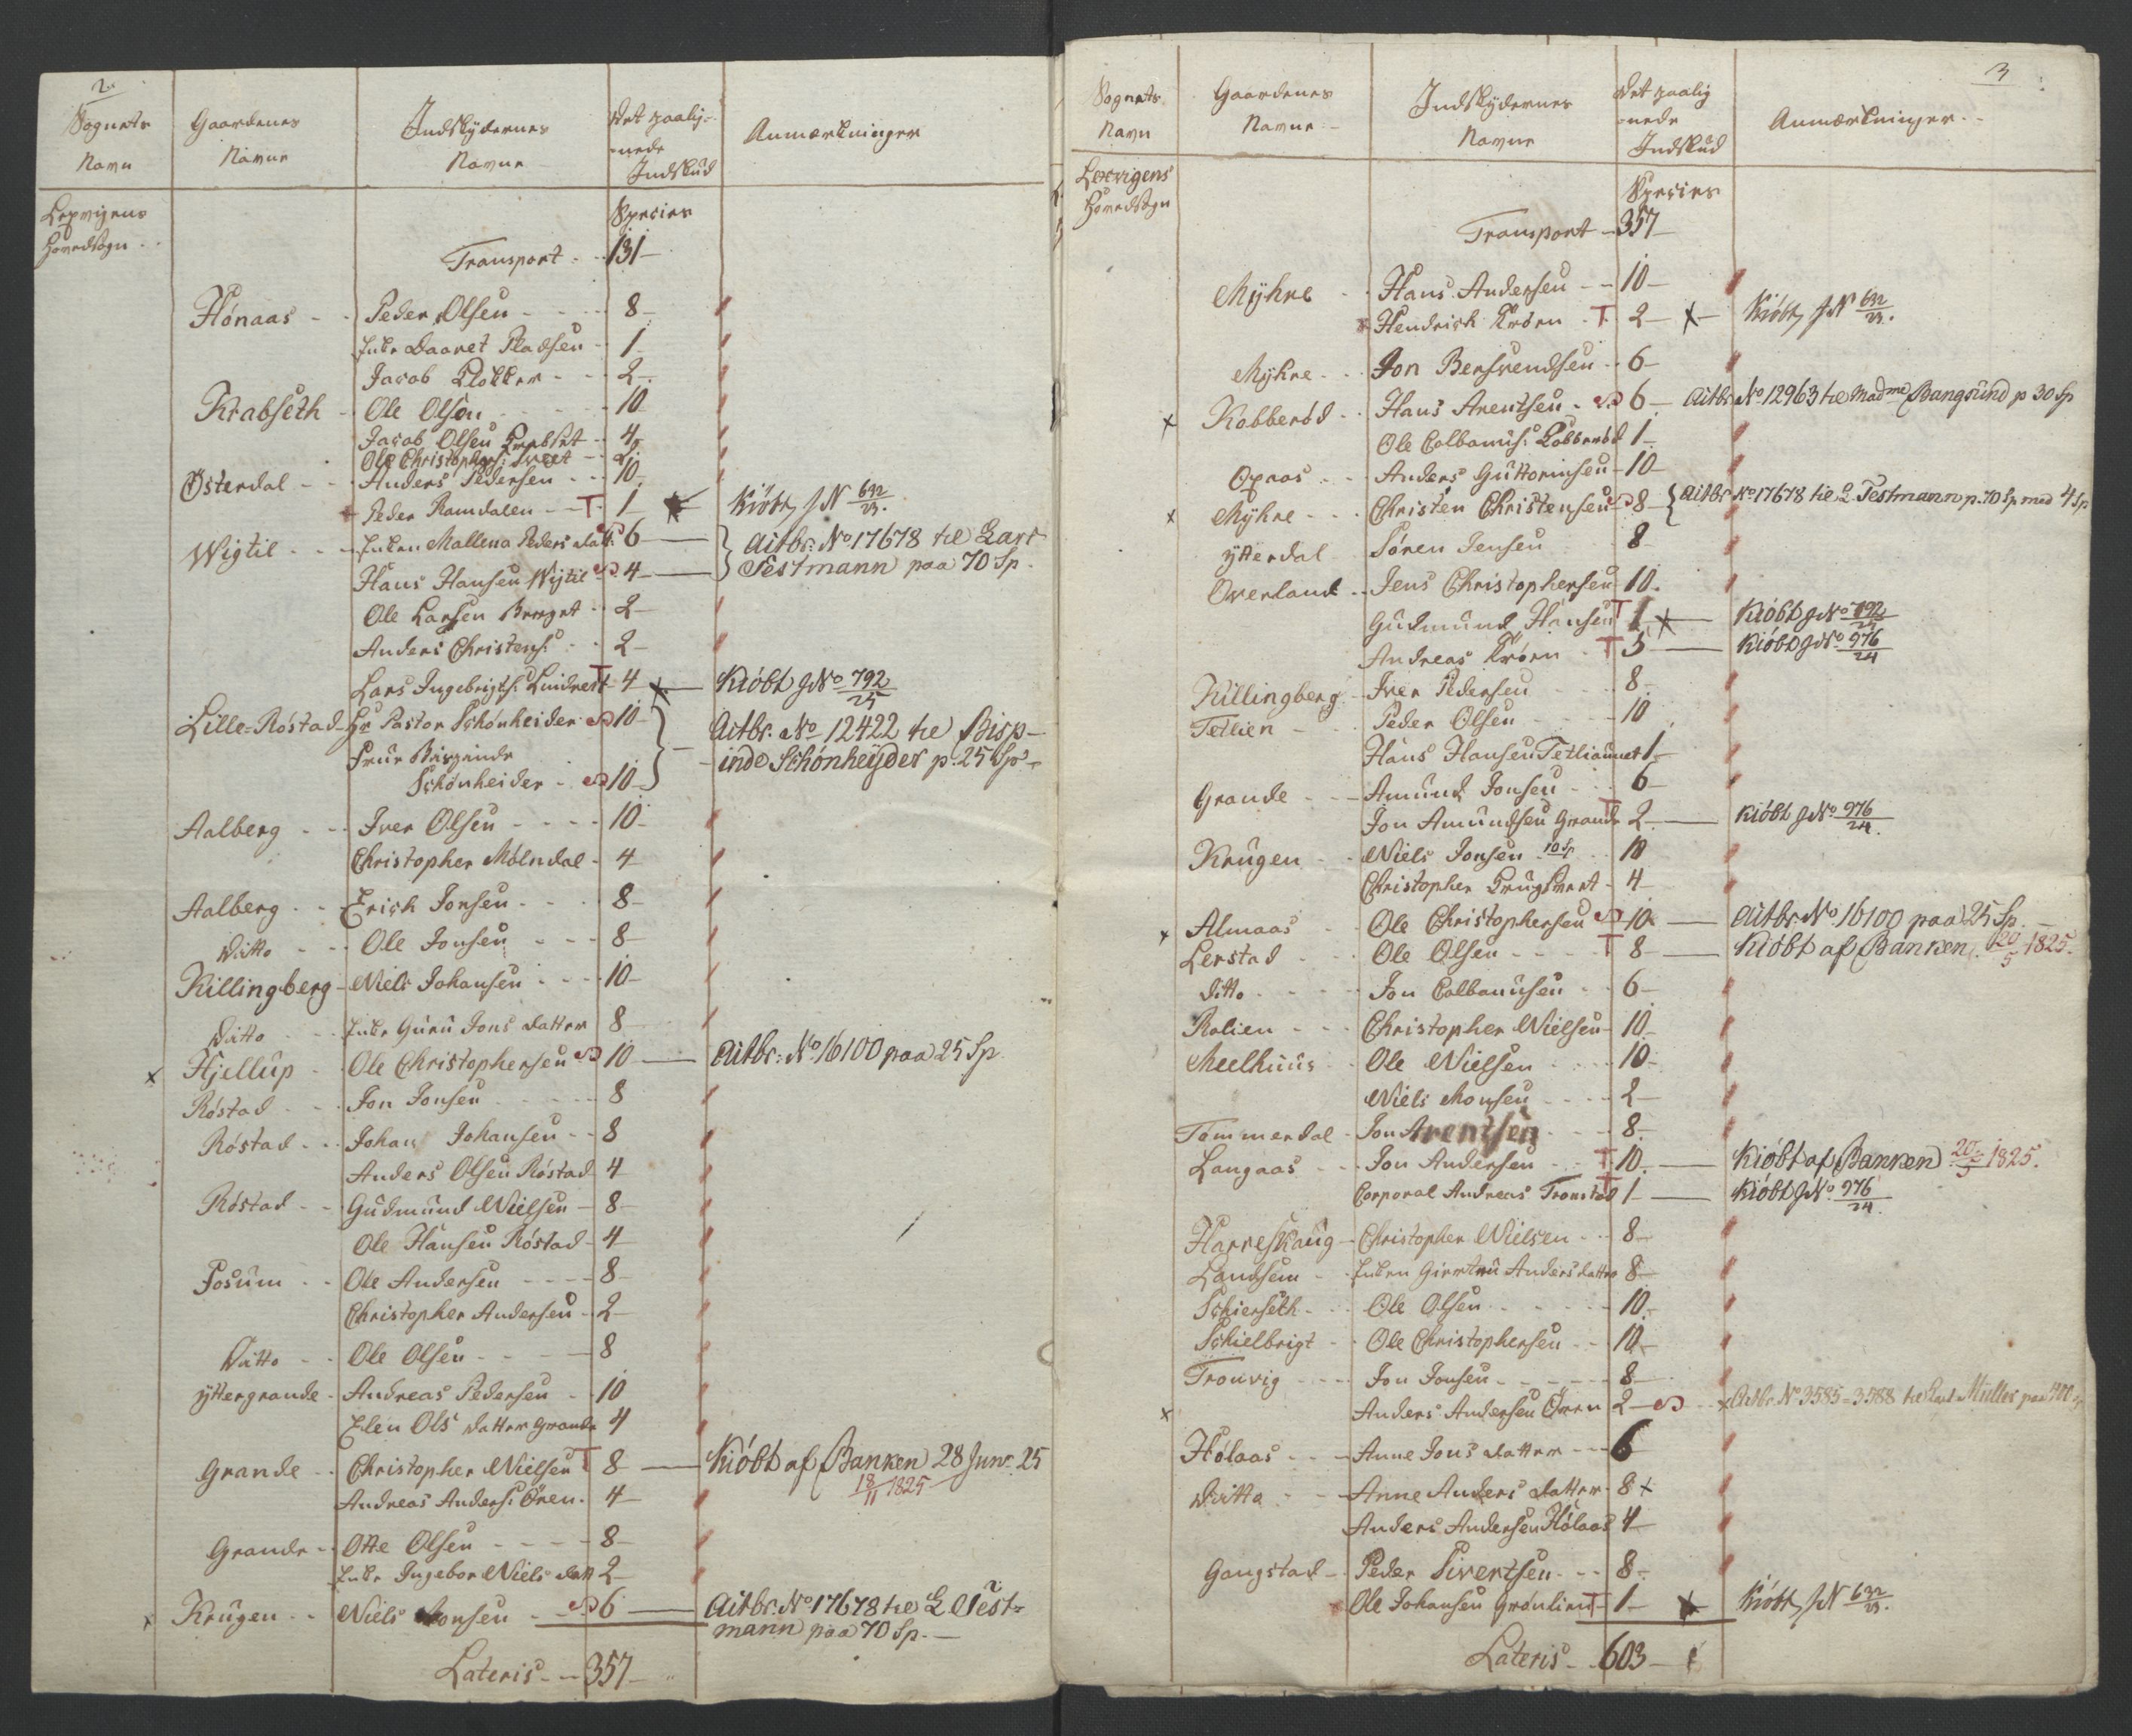 2.
Sognets Navn
Gaardenes Navne
Indskydernes Navne
Det paalignede Indskud
Anmærkninger
Lexvigens Hovedsogn
Species
Transport - 131
Hónaas - Peder Olsen - 8
Enke Daaret Pladsen - 1
Jacob Klokker - 2
Krabseth - Ole Olsen - 10
Jacob Olsen Krabset - 4
Ole Christophers: - 2
Österdal - Anders Pedersen - 10
Peder Ramdalen - T 1 Kióbt, J N 632/23.
Wigtil - Enken Mallena Peders datt: 6 — Actbr. No 17678 til Lars
Hans Hansen Wigtil 4 — Testmann paa 70 Sp.
Ole Larsen Berget - 2
Anders Christens: - 2
Lars Ingebrigts: Lindset T 4 — Kióbt J No 792/25
Lille-Róstad - Hr Pastor Schónheider 10 Actbr. No 12422 til Bisp-
Frue Bispinde inde Schónheyder p. 25 Sp
Schónheider - 10
Aalberg - Iver Olsen - 10
Christopher Mólndal - 4
Aalberg - Erich Jonsen - 8
Ditto - Ole Jonsen - 8
Killingberg - Niels Johansen - 10
Ditto - Enke Guru Jons datter 8
x Hjellup - Ole Christophersen 10 — Actbr: No 16100 paa 25 Sp
Róstad - Jon Jonsen - 8
Róstad - Johan Johansen - 8
Anders Olsen Róstad 4
Róstad - Gudmund Nielsen - 8
Ole Hansen Róstad - 4
Fosum - Ole Andersen - 8
Christopher Andersen - 2
Ditto - Ole Olsen - 8
yttergrande - Andreas Pedersen - 10
Elen Ols datter Grande 4
Grande - Christopher Nielsen T 8 — Kióbt af Banken 28 Junr. 25
18/11 1825
Andreas Anders: Ören - 4
Grande - Otte Olsen - 8
Enke Ingebor Niels datt 2
x Krugen - Niels Monsen - 6 — Actbr. No 17678 til L Test-
mann paa 70 Sp. —
Lateris - 357
3
Sognets Navn
Gaardenes Navne
Indskydernes Navne
Det paalignede Indskud
Anmærkninger
Lexvigens Hovedsogn
Species
Transport - 357
Myhre - Hans Andersen - 10
Hendrich Krörn - T 2 — Kióbt, J N 632/23.
Myhre - Jon Bersvendsen - 6
x Kobberód - Hans Arentsen - 6 Actbr No 12963 til Madme Bangsund p 30 Sp
Ole Colbanus: Kobberód 1
Opaas - Anders Guttormsen - 10
x Myhre - Christen Christensen 8 Actbr No 17678 til L. Testmann p. 70 Sp med 4 Sp
ytterdal Sóren Jensen 8
Overland - Jens Christophersen 10.
Gudmund Hansen T 1 — Kióbt J No 792/25
Andreas Krörn - T 5 — Kióbt J No 976/24
Killingberg - Iver Pedersen - 8
Tetlien - Peder Olsen - 10
Hans Hansen Tetliaunet 1
Grande - Amund Jonsen - 6
Jon Amundsen Grande T 2 — Kióbt J No 976/24.
Krugen - Niels Jonsen 10 Sp 10
Christopher - 4
x Almaas - Ole Christophersen 10 — Actbr No 16100 paa 25 Sp. —
Lerstad - Ole Olsen - T 8 — Kióbt af Banken 20/5 1825.
Ditto - Jon Colbanusen - 6
Ralien - Christopher Nielsen 10
Meelhuus - Ole Nielsen - 10
Niels Monsen - 2
Tömmerdal - Jon Arentsen - 8.
Langaas - Jon Andersen - T 10. — Kióbt af Banken 20/5 1825.
Corporal Andreas Tronstad T 1 — Kióbt J No 976/24.
Harreskaug - Christopher Nielsen - 8
Landsem - Enken Giertru Anders datter 8
Schierseth - Ole Olsen - 10
Schielbrigt - Ole Christophersen - 10
Tronvig - Jon Jonsen - 8
x Anders Andersen Ören 2 — x Actbr No 3585-3588 til Müller paa 400 Sp
Hólaas - Anne Jons datter - 6
Ditto - Anne Anders datter - 8 x
Anders Andersen Hólaas 4
Gangstad - Peder Sivertsen - 8
Ole Johansen Grónlien T 1 Kióbt, J N 632/23.
Lateris - 603